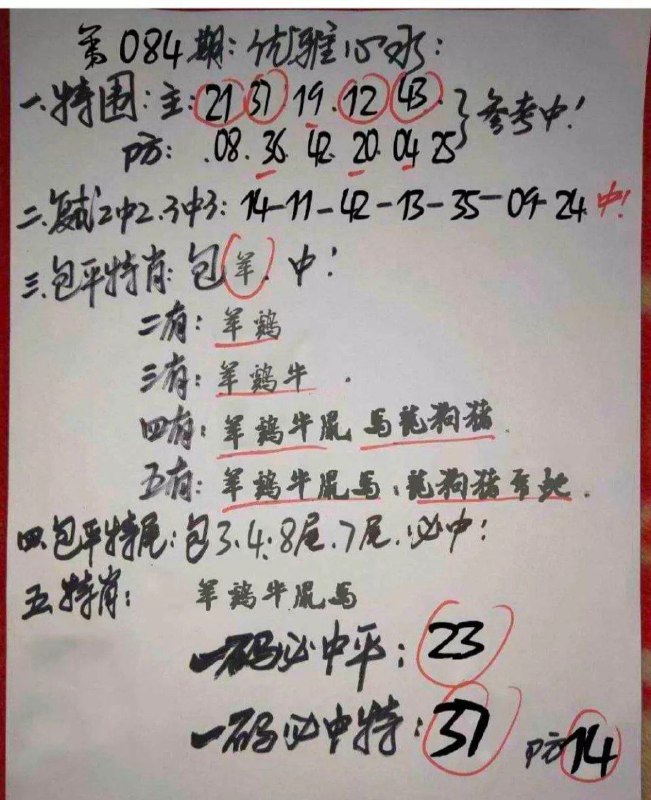 第084期:优雅心水:
一.特围:主:21 37 19.12 43.
防:.08.36.42.20.04 25 参考中!
二.复试2中2.3中3:14-11-42-13-35-09-24 中!
三.包平特肖:包羊.中!
二有:羊鸡
三有:羊鸡牛.
四有:羊鸡牛鼠 马龙狗猪
五有:羊鸡牛鼠马、龙狗猪兔蛇.
四.包平特尾:包3.4.8尾.7尾.必中!
五.特肖: 羊鸡牛鼠马
一码必中平:23
一码必中特:37 防14